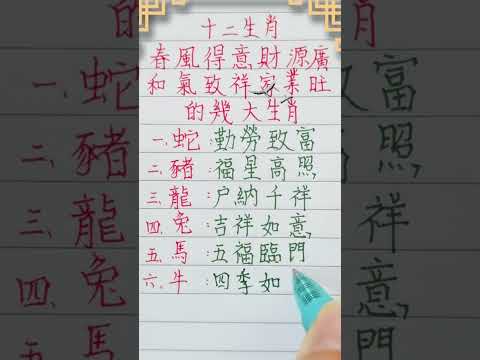 十二生肖
春風得意財源廣
和氣致祥家業旺
的幾大生肖
一、蛇:勤勞致富
二、豬:福星高照
三、龍:户納千祥
四、兔:吉祥如意
五、馬:五福臨門
六、牛:四季如